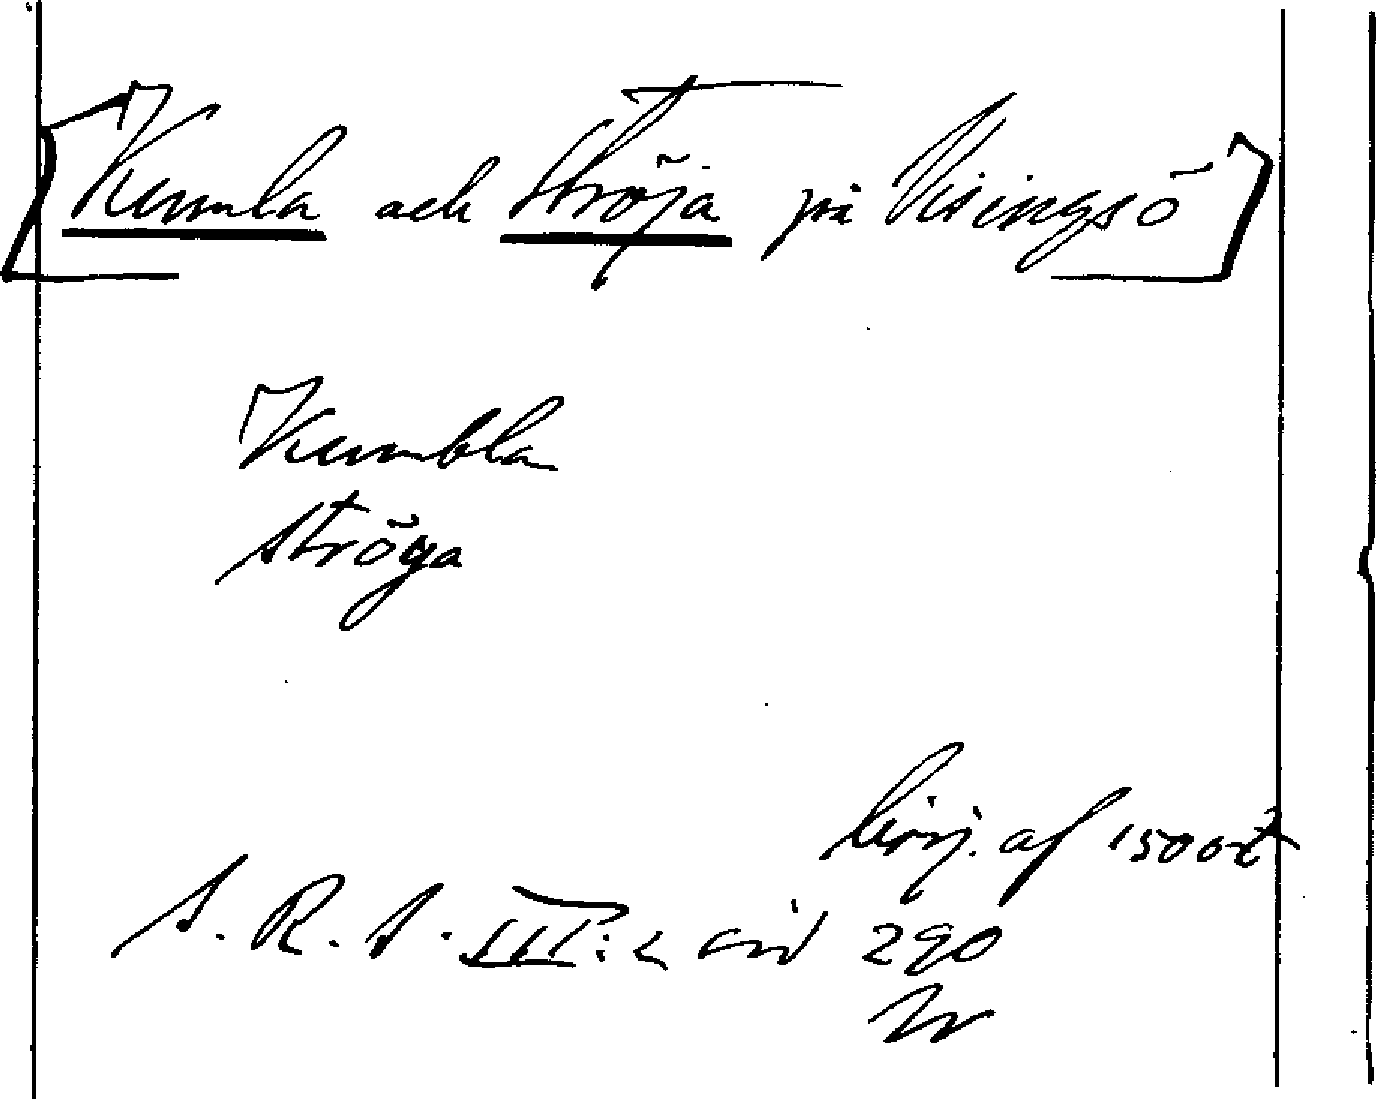 [Kumla och Ströja på Visingsö]
Kumbla
Ströga
börj. af 1500-t
S. R. S. III:2 sid 290